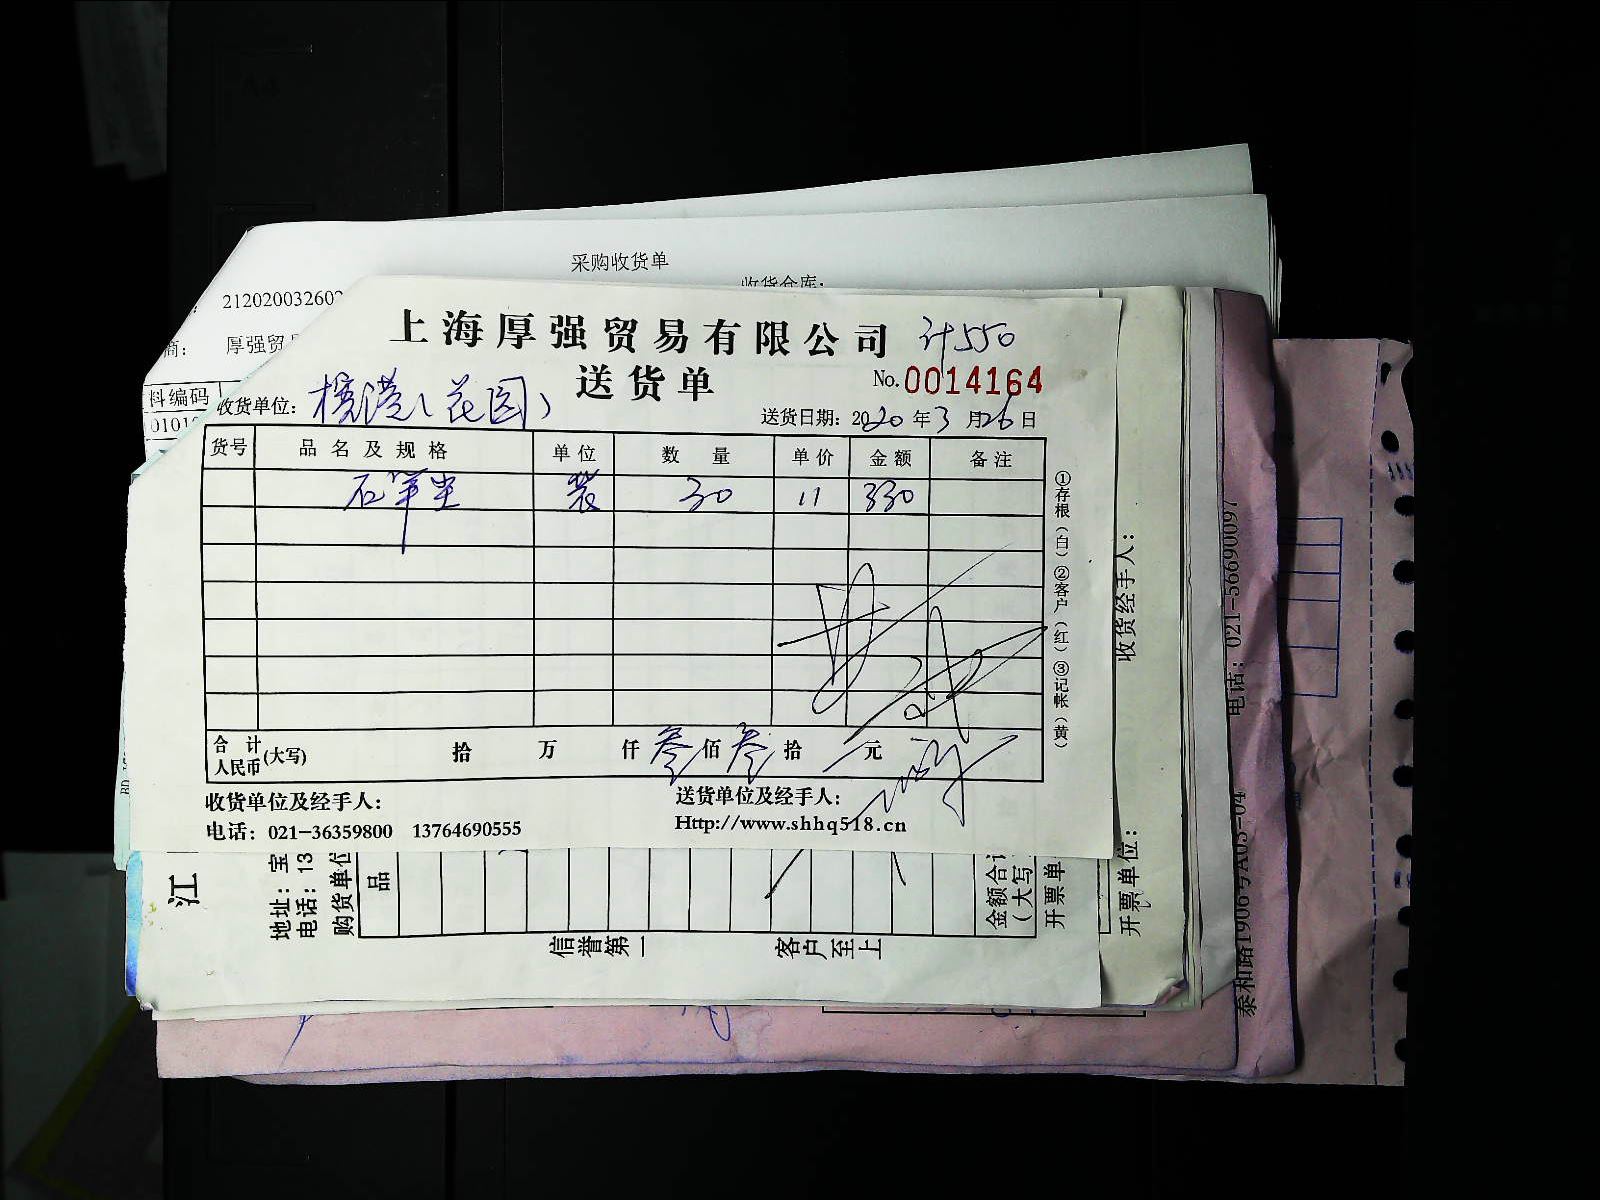 采购收货单
收货仓库:
212020032602
商: 厚强贸易
料编码
0101
上海厚强贸易有限公司 计550
送货单 No.0014164
收货单位: (花园) 送货日期: 2020年3月26日
货号 品名及规格 单位 数量 单价 金额 备注
30 11 330
合计人民币(大写) 拾 万 仟 叁佰 叁拾 元
收货单位及经手人: 送货单位及经手人:
电话: 021-36359800 13764690555 Http://www.shhq518.cn
①存根(白)②客户(红)③记帐(黄)
收货经手人:
开票单位:
电话: 021-56690097
泰和路1906号A03-04
江
地址: 宝
电话: 13
购货单位
品
金额合计
(大写
开票单
信誉第一 客户至上